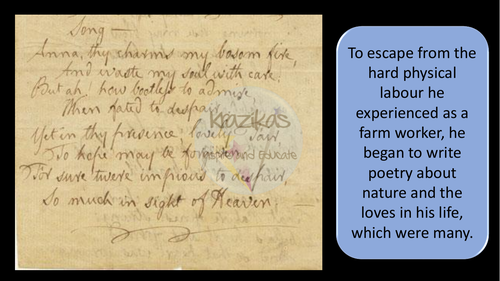 Song —
Anna, thy charms my bosom fire,
And waste my soul with care;
But ah! how bootless to admire
When fated to despair
Yet in thy presence, lovely Fair
To hope may be forgiven
For sure twere impious to despair,
So much in sight of Heaven.
Krazikas
and Educate
To escape from the
hard physical
labour he
experienced as a
farm worker, he
began to write
poetry about
nature and the
loves in his life,
which were many.